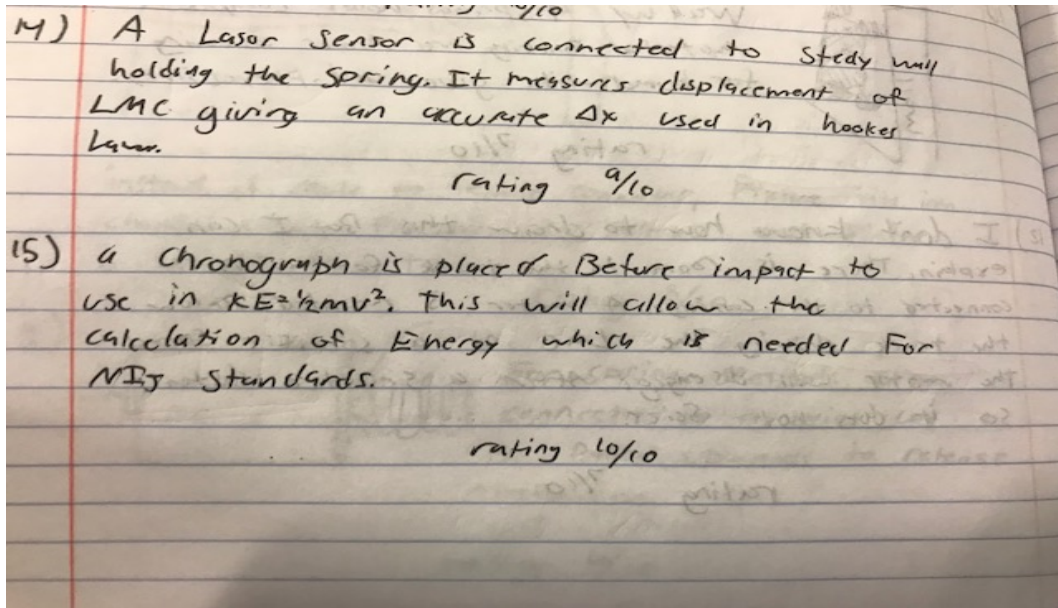 14) A Lasor Sensor is connected to Stedy wall
holding the spring. It measures displacement of
LMC giving an accurate Δx used in hookes
rating 9/10
15) a Chronograph is placed Before impact to
use in KE=½mv². This will allow the
calculation of Energy which is needed For
NIJ Standards.
rating 10/10